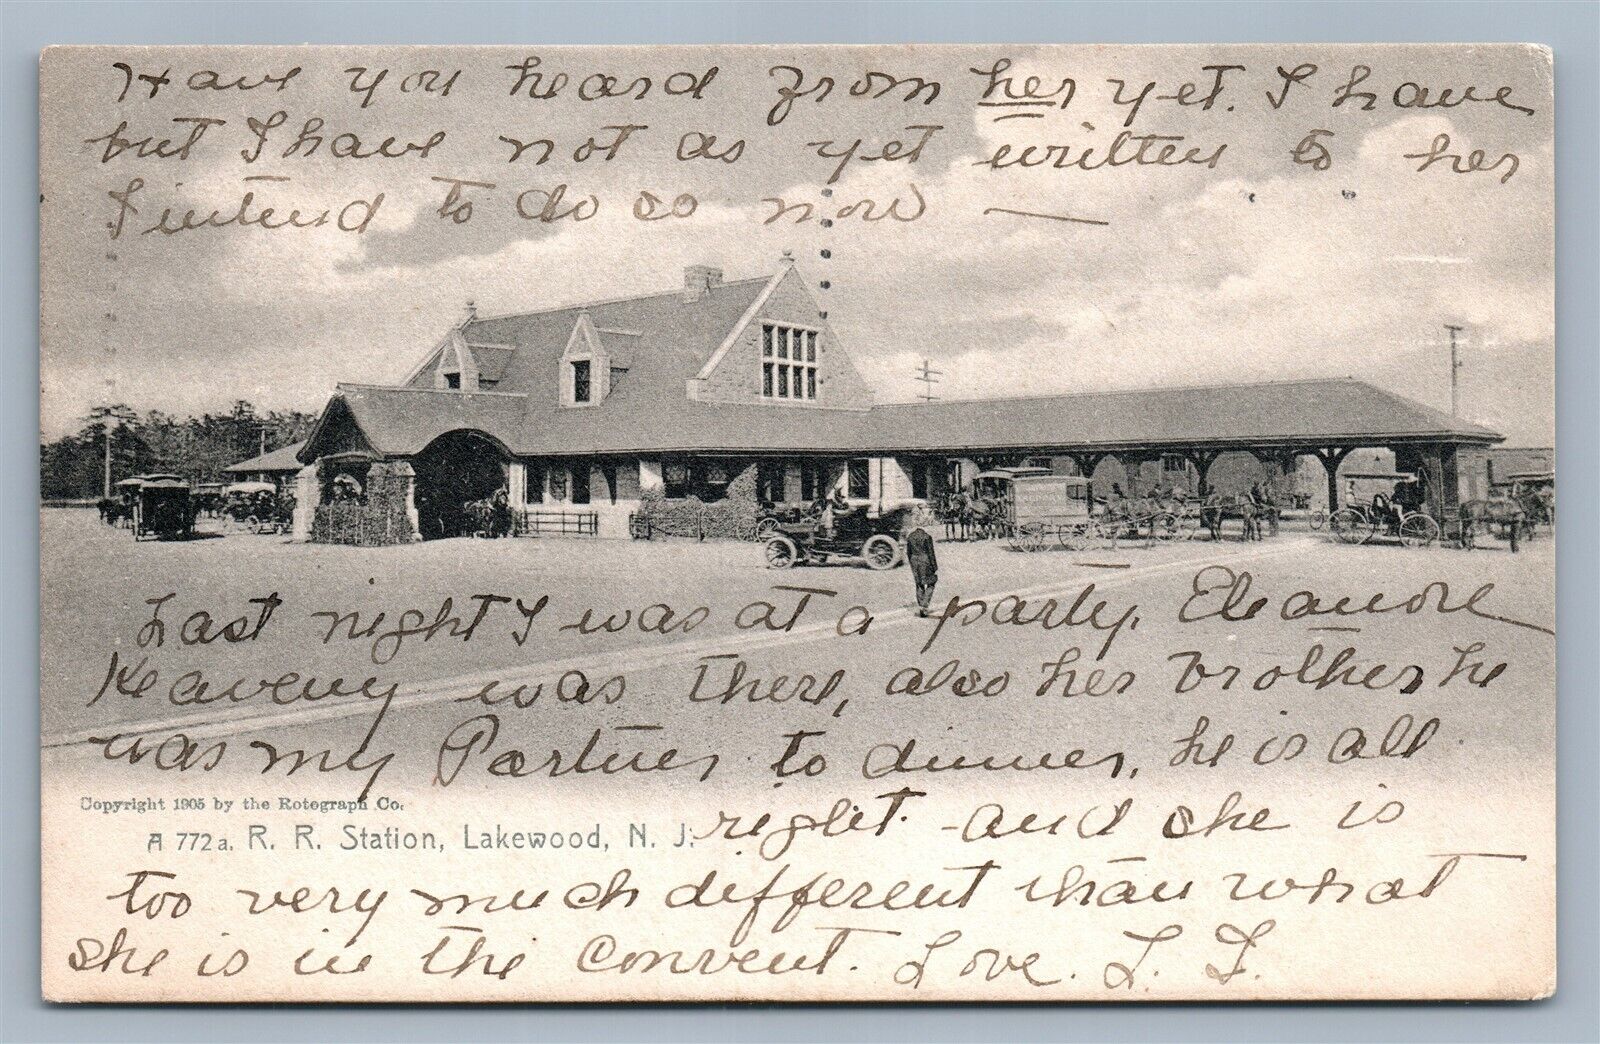 Have you heard from her yet. I have
but I have not as yet written to her
I intend to do so now —
Last night I was at a party. Eleanore
Keaveny was there, also her brother he
was my Partner to dinner, he is all
right. - and she is
Copyright 1905 by the Rotograph Co.
A 772 a. R. R. Station, Lakewood, N. J.
too very much different than what
she is in the Convent. Love. L. F.